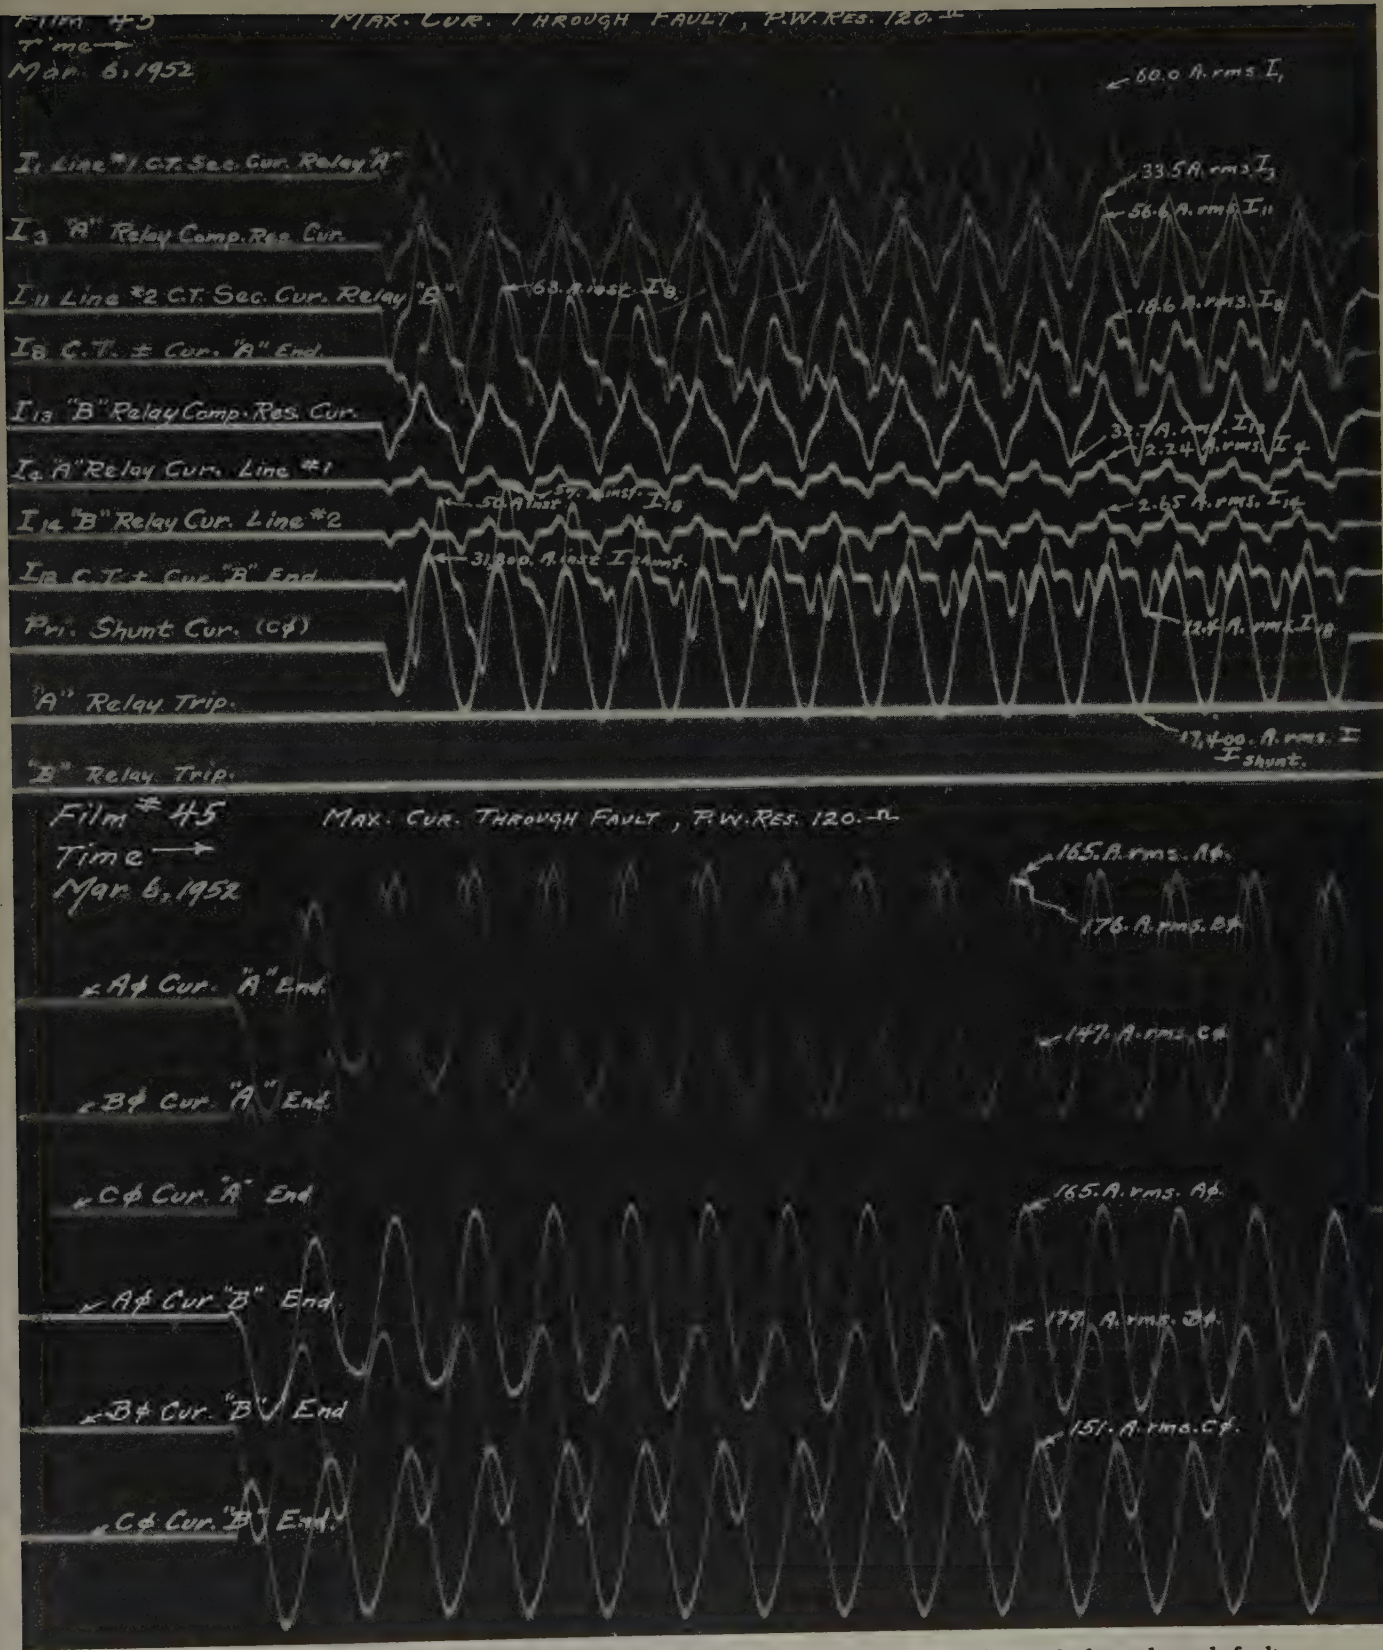 Film #45
MAX. CUR. THROUGH FAULT, P.W. RES. 120. Ω
Time →
Mar. 6, 1952
60.0 A. rms I₁
I₁ Line #1 C.T. Sec. Cur. Relay "A"
33.5 A. rms I₃
56.6 A. rms I₁₁
I₃ "A" Relay Comp. Res. Cur.
I₁₁ Line #2 C.T. Sec. Cur. Relay "B"
63. A. inst. I₈
18.6 A. rms. I₈
I₈ C.T. ± Cur. "A" End.
I₁₃ "B" Relay Comp. Res. Cur.
A. rms. I₁₃
2.24 A. rms. I₄
I₄ "A" Relay Cur. Line #1
57. A inst.
50. A inst I₁₈
2.65 A. rms. I₁₄
I₁₄ "B" Relay Cur. Line #2
31,800. A. inst I shunt.
I₁₈ C.T. ± Cur. "B" End
12.4 A. rms. I₁₈
Pri. Shunt Cur. (Cϕ)
"A" Relay Trip.
17,400. A. rms. I
I shunt.
"B" Relay Trip.
Film #45
MAX. CUR. THROUGH FAULT, P.W. RES. 120. Ω
Time →
Mar 6, 1952
165. A. rms. Aϕ.
176. A. rms. Bϕ
Aϕ Cur. "A" End.
147. A. rms. Cϕ
Bϕ Cur. "A" End.
Cϕ Cur. "A" End
165. A. rms. Aϕ.
Aϕ Cur "B" End.
179. A. rms. Bϕ.
Bϕ Cur. "B" End
151. A. rms. Cϕ.
Cϕ Cur. "B" End.